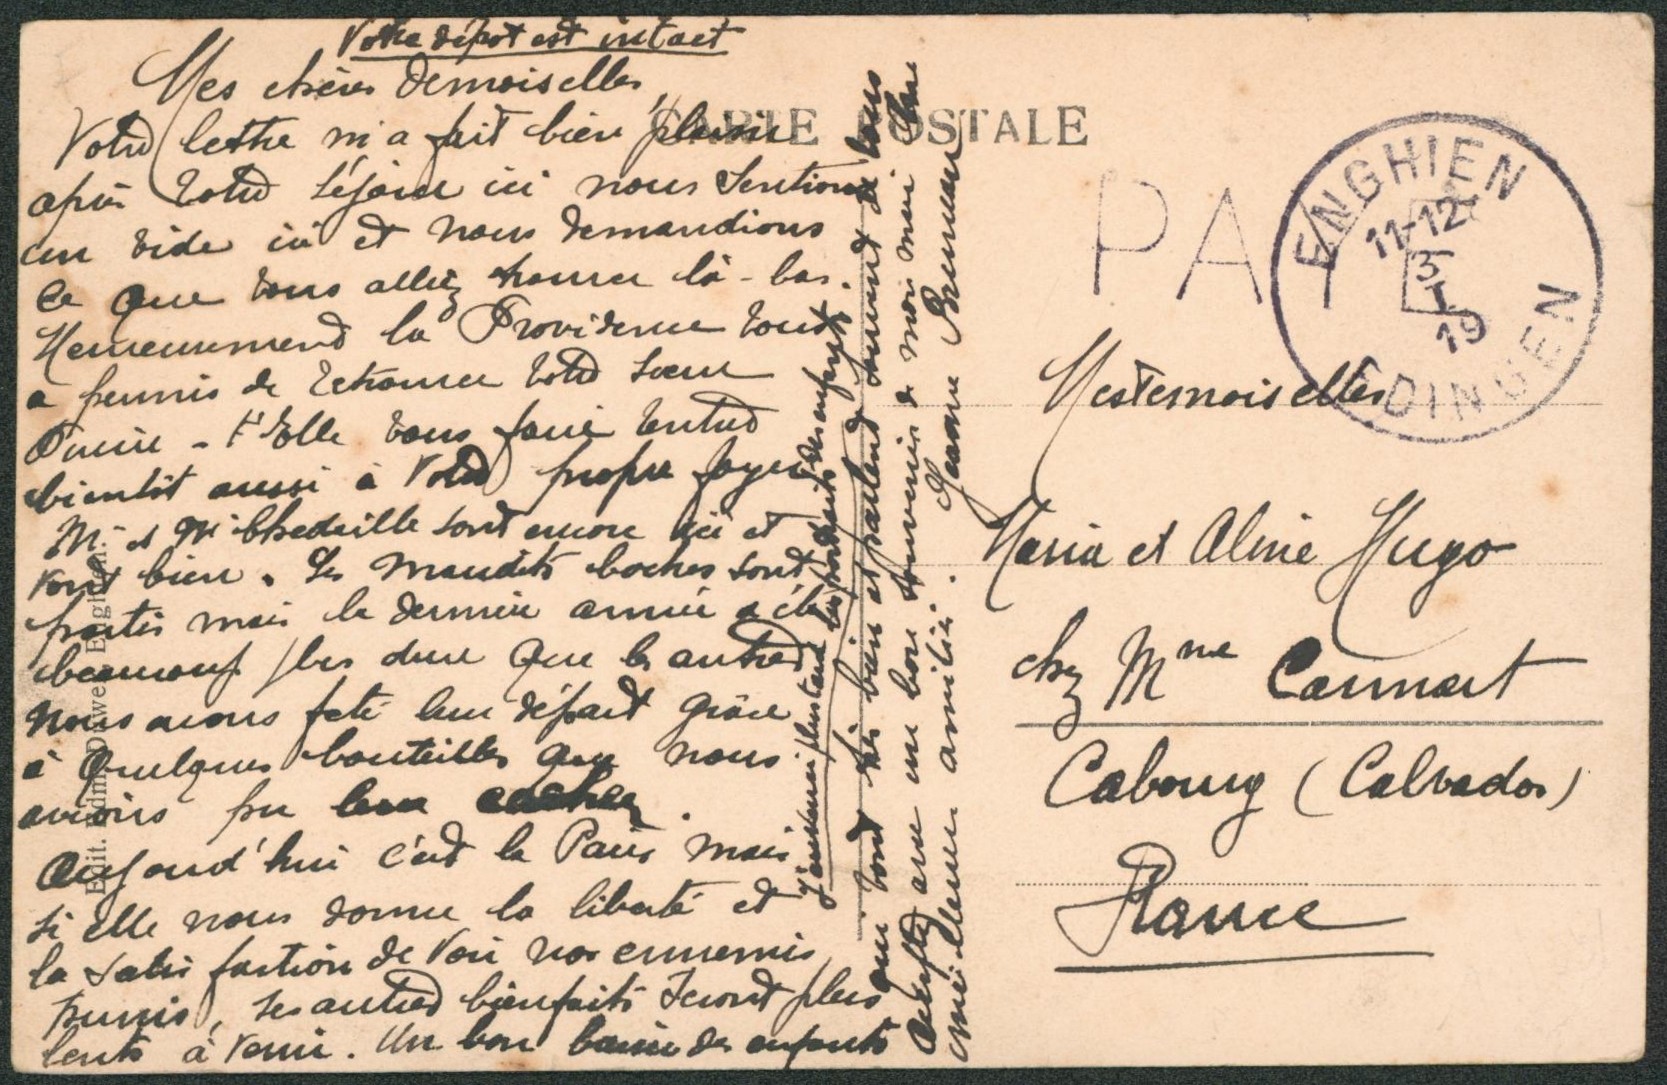 Votre dépôt est intact
Mes chères Demoiselles,
Votre lettre m'a fait bien plaisir
après votre séjour ici nous sentions
un vide ici et nous demandions
ce que vous alliez trouver là-bas.
Heureusement la Providence vous
a permis de retrouver votre soeur
et Elle vous fasse rentrer
bientôt aussi à votre propre foyer
Mr et Me Chedeville sont encore ici et
vont bien. Les maudits boches sont
partis mais la dernière année a été
beaucoup plus dure que les autres
Nous avons fêté leur départ grâce
à quelques bouteilles que nous
avions pu leur cacher.
Aujourd'hui c'est la Paix mais
si elle nous donne la liberté et
la satisfaction de voir nos ennemis
punis, ses autres bienfaits seront plus
lents à venir. Un bon baiser des enfants
qui vont très bien et parlent souvent de vous
Acceptez avec un bon souvenir de mon mari mes
meilleures amitiés. Jeanne
J'enverrai plus tard les portraits des enfants
CARTE POSTALE
PA
ENGHIEN
11-12
3
I
19
EDINGEN
Mesdemoiselles
Maria et Aline Hugo
chez Mme Carmart
Cabourg (Calvados)
France
Edit. Edm. Enghien.